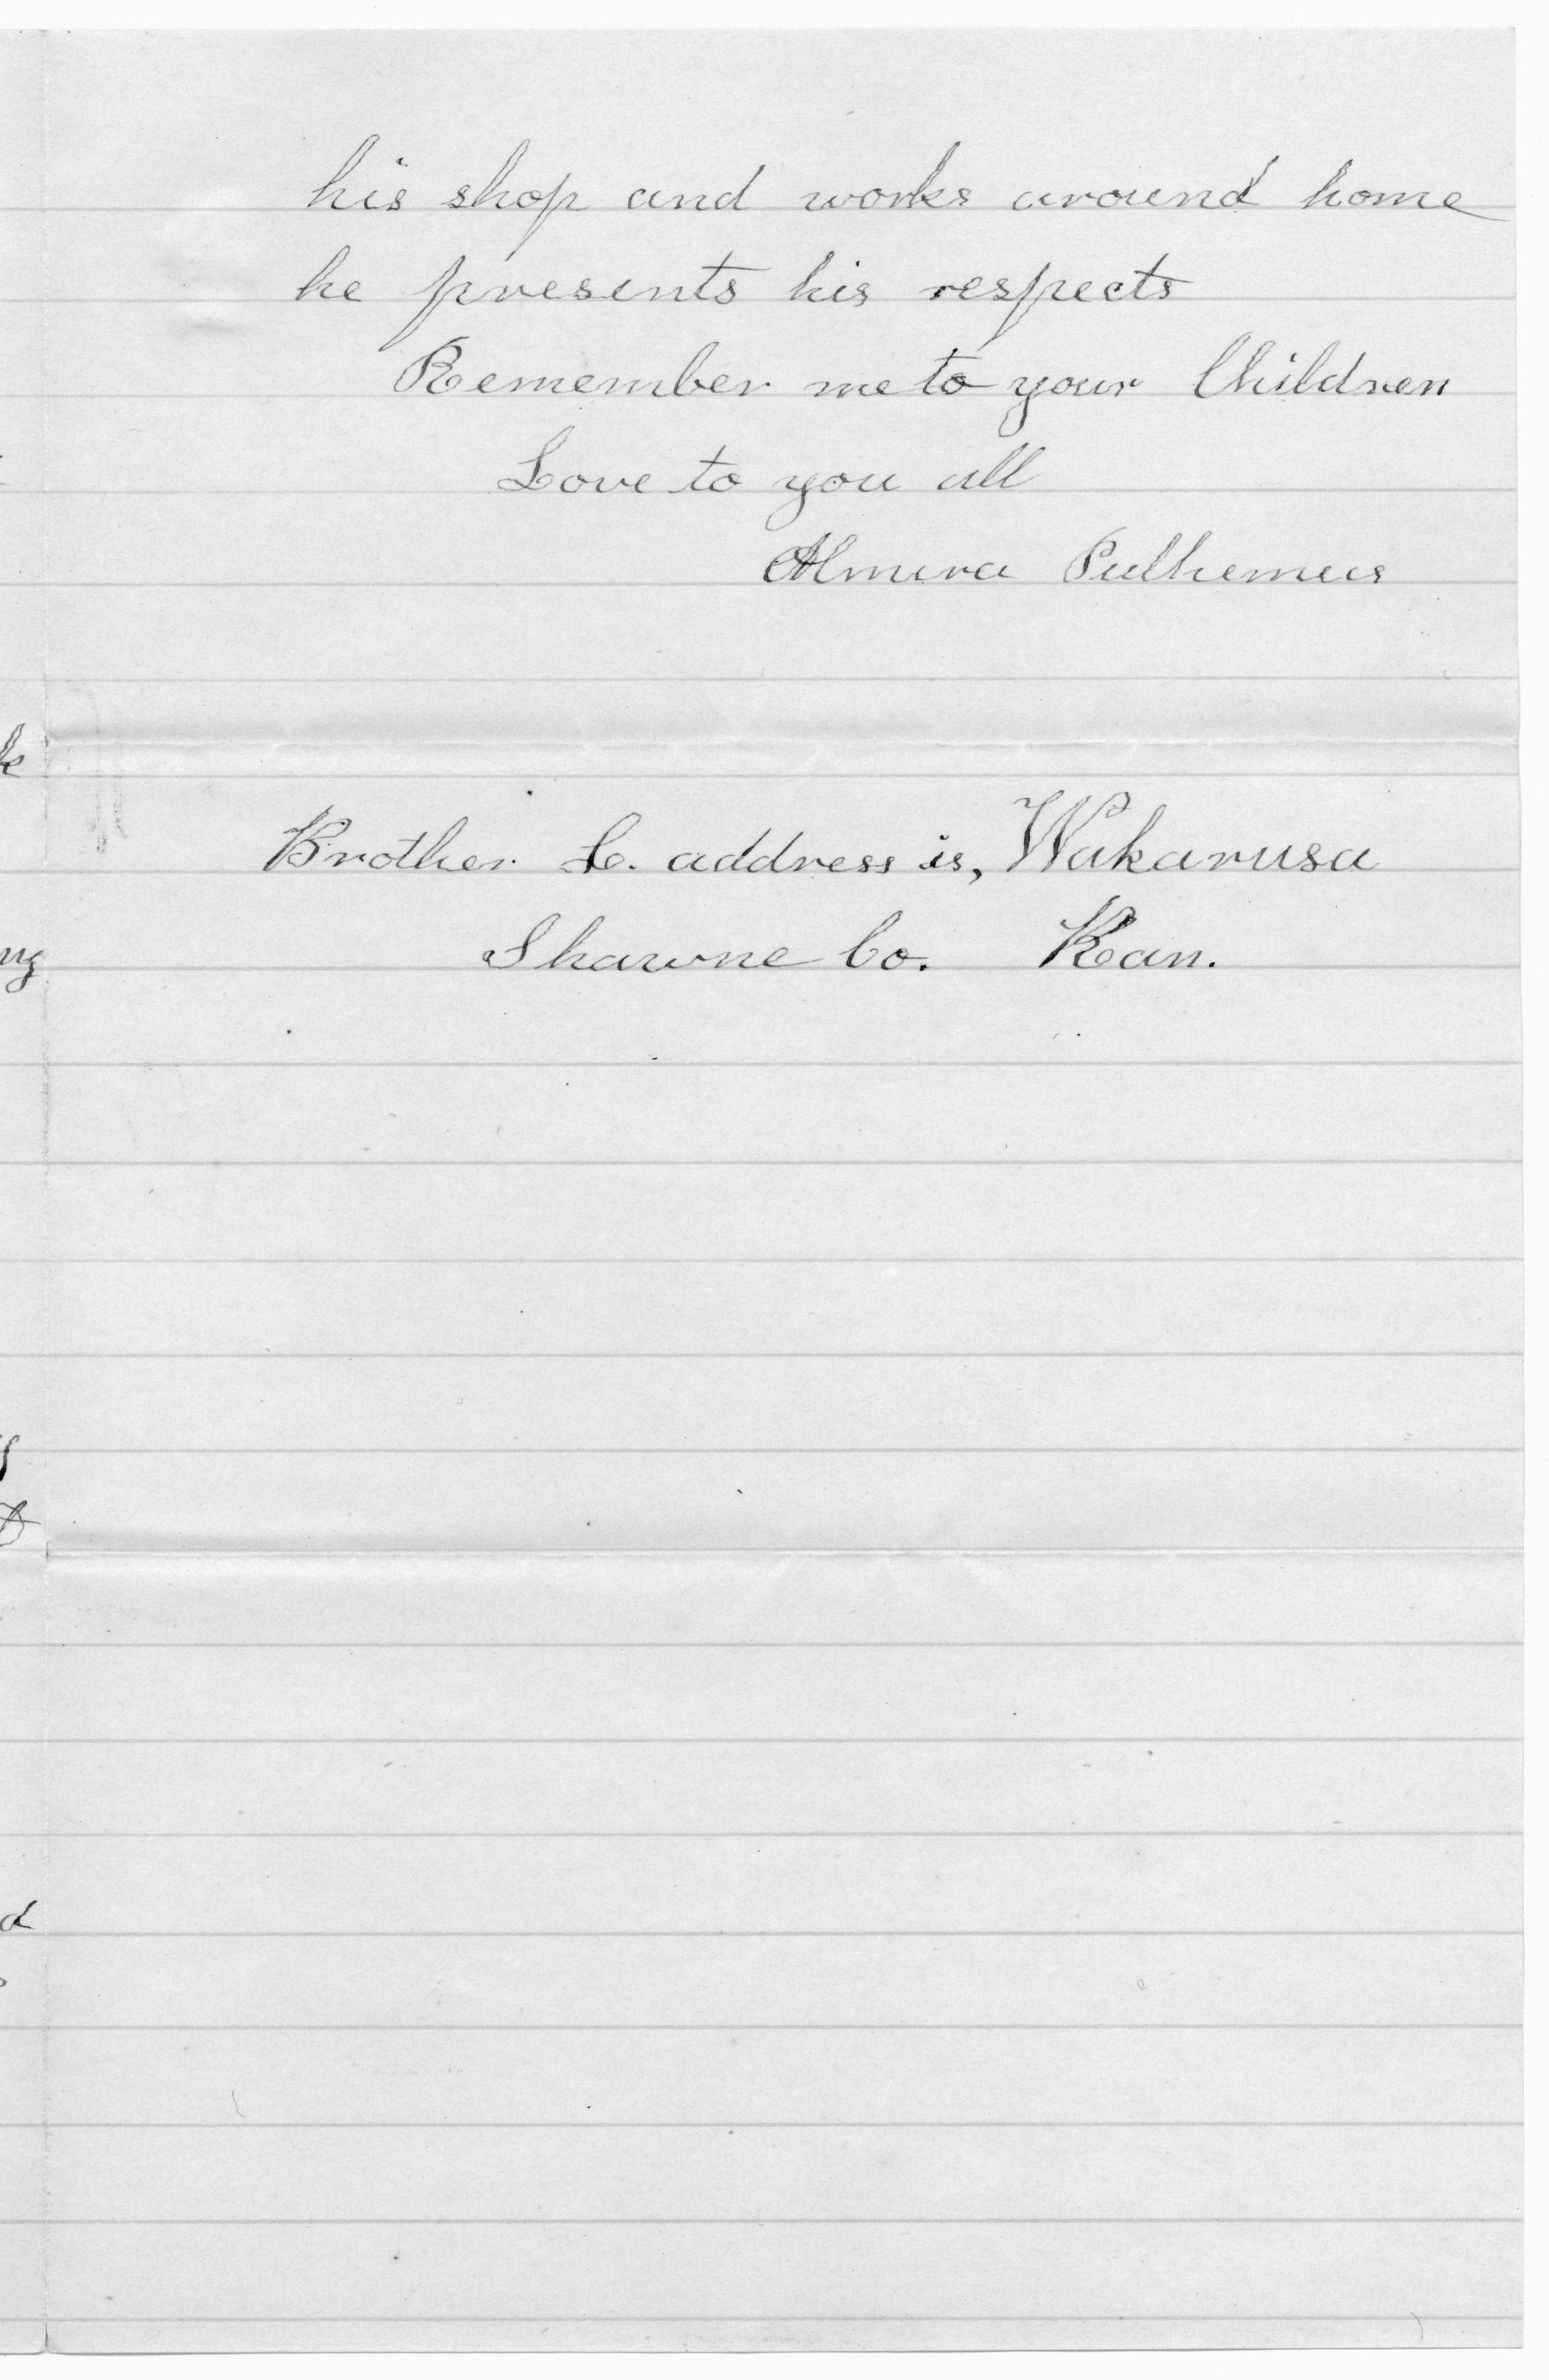 his shop and works around home
he presents his respects
Remember me to your Children
Love to you all
Almira Pulhemus
Brother L. address is, Wakarusa
Shawne Co. Kan.